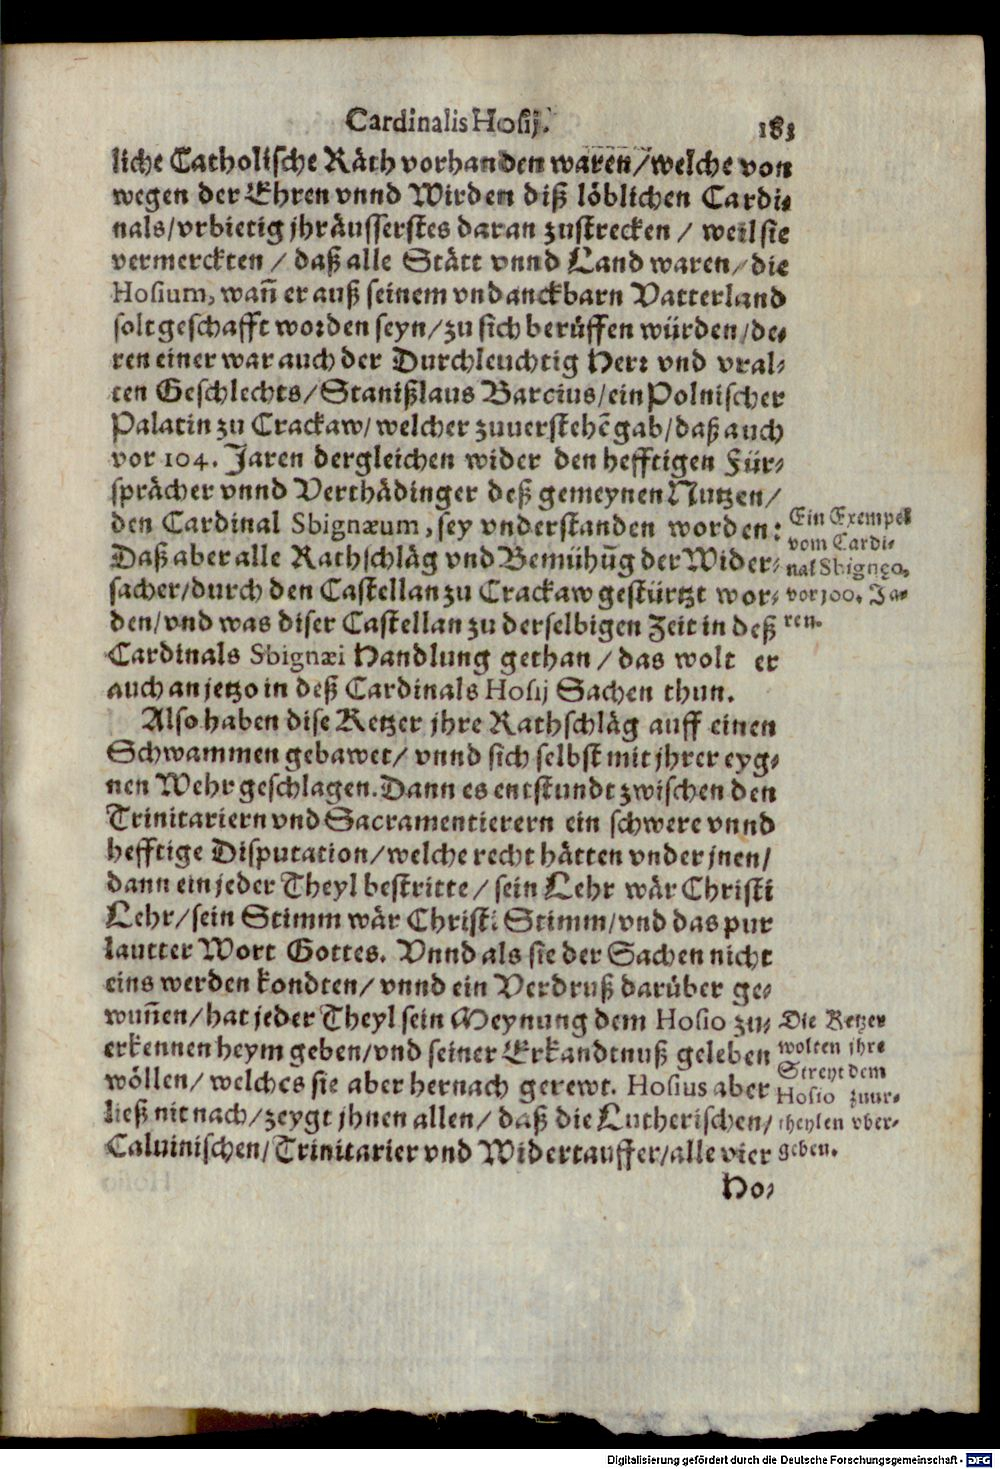 Cardinalis Hosij.
183
liche Catholische Räth vorhanden waren/welche von
wegen der Ehren vnnd Wirden diß löblichen Cardi-
nals/vrbietig jhräusserstes daran zustrecken / weil sie
vermerckten / daß alle Stätt vnnd Land waren/die
Hosium, wañ er auß seinem vndanckbarn Vatterland
solt geschafft worden seyn/zu sich berüffen würden/de-
ren einer war auch der Durchleuchtig Herr vnd vral-
ten Geschlechts/Stanißlaus Barcius/ein Polnischer
Palatin zu Crackaw/welcher zuuerstehẽ gab/daß auch
vor 104. Jaren dergleichen wider den hefftigen Für-
sprächer vnnd Verthädinger deß gemeynen Nutzen/
den Cardinal Sbignæum, sey vnderstanden worden:
Daß aber alle Rathschläg vnd Bemühũg der Wider-
sacher/durch den Castellan zu Crackaw gestürtzt wor-
den/vnd was diser Castellan zu derselbigen Zeit in deß
Cardinals Sbignæi Handlung gethan / das wolt er
auch an jetzo in deß Cardinals Hosij Sachen thun.
Ein Exempel
vom Cardi-
nal Sbignęo,
vor 100. Ja-
ren.
Also haben dise Ketzer jhre Rathschläg auff einen
Schwammen gebawet/ vnnd sich selbst mit jhrer eyg-
nen Wehr geschlagen. Dann es entstundt zwischen den
Trinitariern vnd Sacramentierern ein schwere vnnd
hefftige Disputation/welche recht hätten vnder jnen/
dann ein jeder Theyl bestritte/ sein Lehr wär Christi
Lehr/sein Stimm wär Christi Stimm/vnd das pur
lautter Wort Gottes. Vnnd als sie der Sachen nicht
eins werden kondten/ vnnd ein Verdruß darüber ge-
wuñen/hat jeder Theyl sein Meynung dem Hosio zu-
erkennen heym geben/vnd seiner Erkandtnuß geleben
wöllen/ welches sie aber hernach gerewt. Hosius aber
ließ nit nach/zeygt jhnen allen/ daß die Lutherischen/
Caluinischen/Trinitarier vnd Widertauffer/alle vier
Die Ketzer
wolten jhre
Streyt dem
Hosio zuur-
theylen vber-
geben.
Ho-
Digitalisierung gefördert durch die Deutsche Forschungsgemeinschaft - DFG